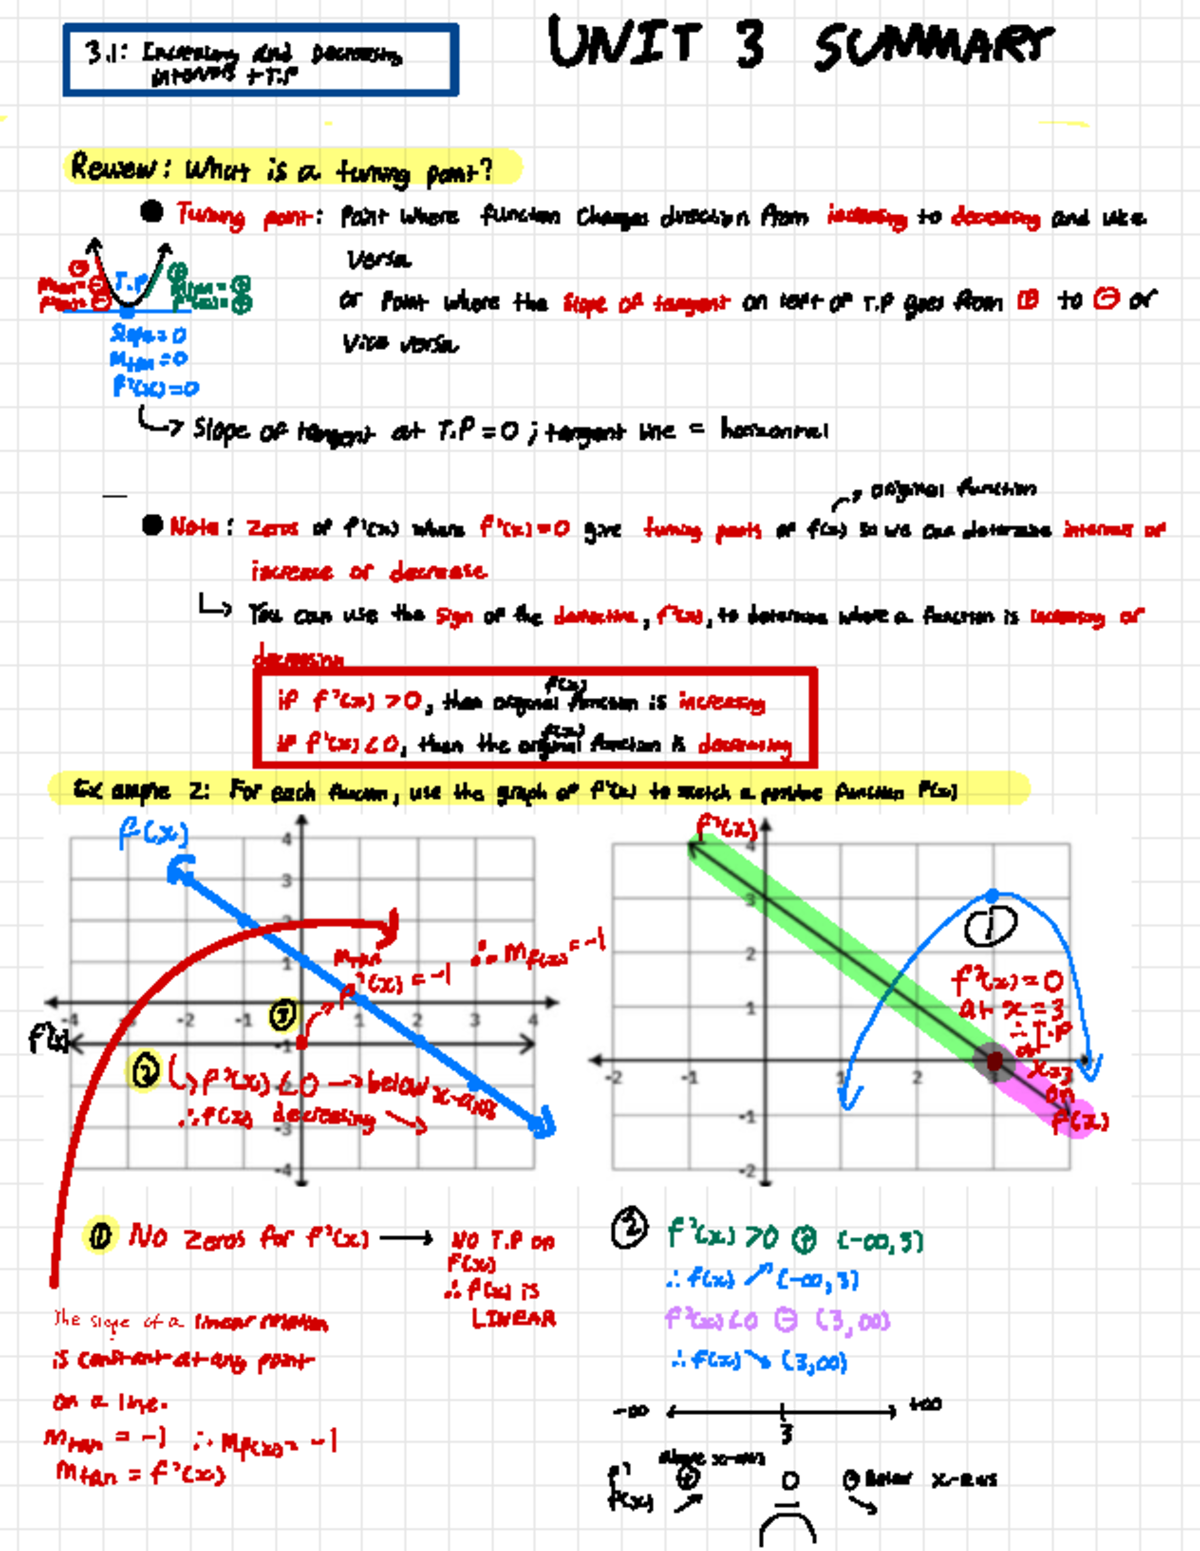 UNIT 3 SUMMARY
3.1: Increasing and Decreasing
intervals + T.P
Review: What is a turning point?
Turning point: Point where function changes direction from increasing to decreasing and vice
versa
or point where the slope of tangent on left of T.P goes from ⊕ to ⊖ or
vice versa
T.P
Slope = 0
Mtan = 0
f'(x) = 0
↳ Slope of tangent at T.P = 0 ; tangent line = horizontal
→ original function
Note: Zeros of f'(x) where f'(x) = 0 give turning points of f(x) so we can determine intervals of
increase or decrease
↳ You can use the sign of the derivative, f'(x), to determine where a function is increasing or
decreasing
f(x)
if f'(x) > 0, then original function is increasing
f(x)
if f'(x) < 0, then the original function is decreasing
Example 2: For each function, use the graph of f'(x) to sketch a possible function f(x)
f(x)
4
3
2
1
-4 -2 -1 1 2 3 4
-1
-3
-4
f'(x)
Mtan
f'(x) = -1 ∴ Mf(x) = -1
③
② ↳ f'(x) < 0 → below x-axis
∴ f(x) decreasing ↘
f'(x)
4
3
2
1
-2 -1 1 2
-1
-2
①
f'(x) = 0
at x = 3
∴ T.P
at
x=3
on
f(x)
① No zeros for f'(x) → NO T.P on
f(x)
∴ f(x) is
LINEAR
The slope of a linear relation
is constant at any point
on a line.
Mtan = -1 ∴ Mf(x) = -1
Mtan = f'(x)
② f'(x) > 0 ⊕ (-∞, 3)
∴ f(x) ↗ (-∞, 3)
f'(x) < 0 ⊖ (3, ∞)
∴ f(x) ↘ (3, ∞)
-∞ +∞
3
above x-axis
f' ⊕ 0 ⊖ Below x-axis
f(x) ↗ ↘